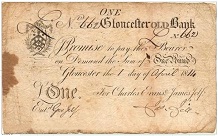 ONE
No 662 Gloucester OLD Bank
No 662
I Promise to pay the Bearer
on Demand the Sum of One Pound
Gloucester the 1 day of 1814
One For Charles Evans & James Jelf
Entd